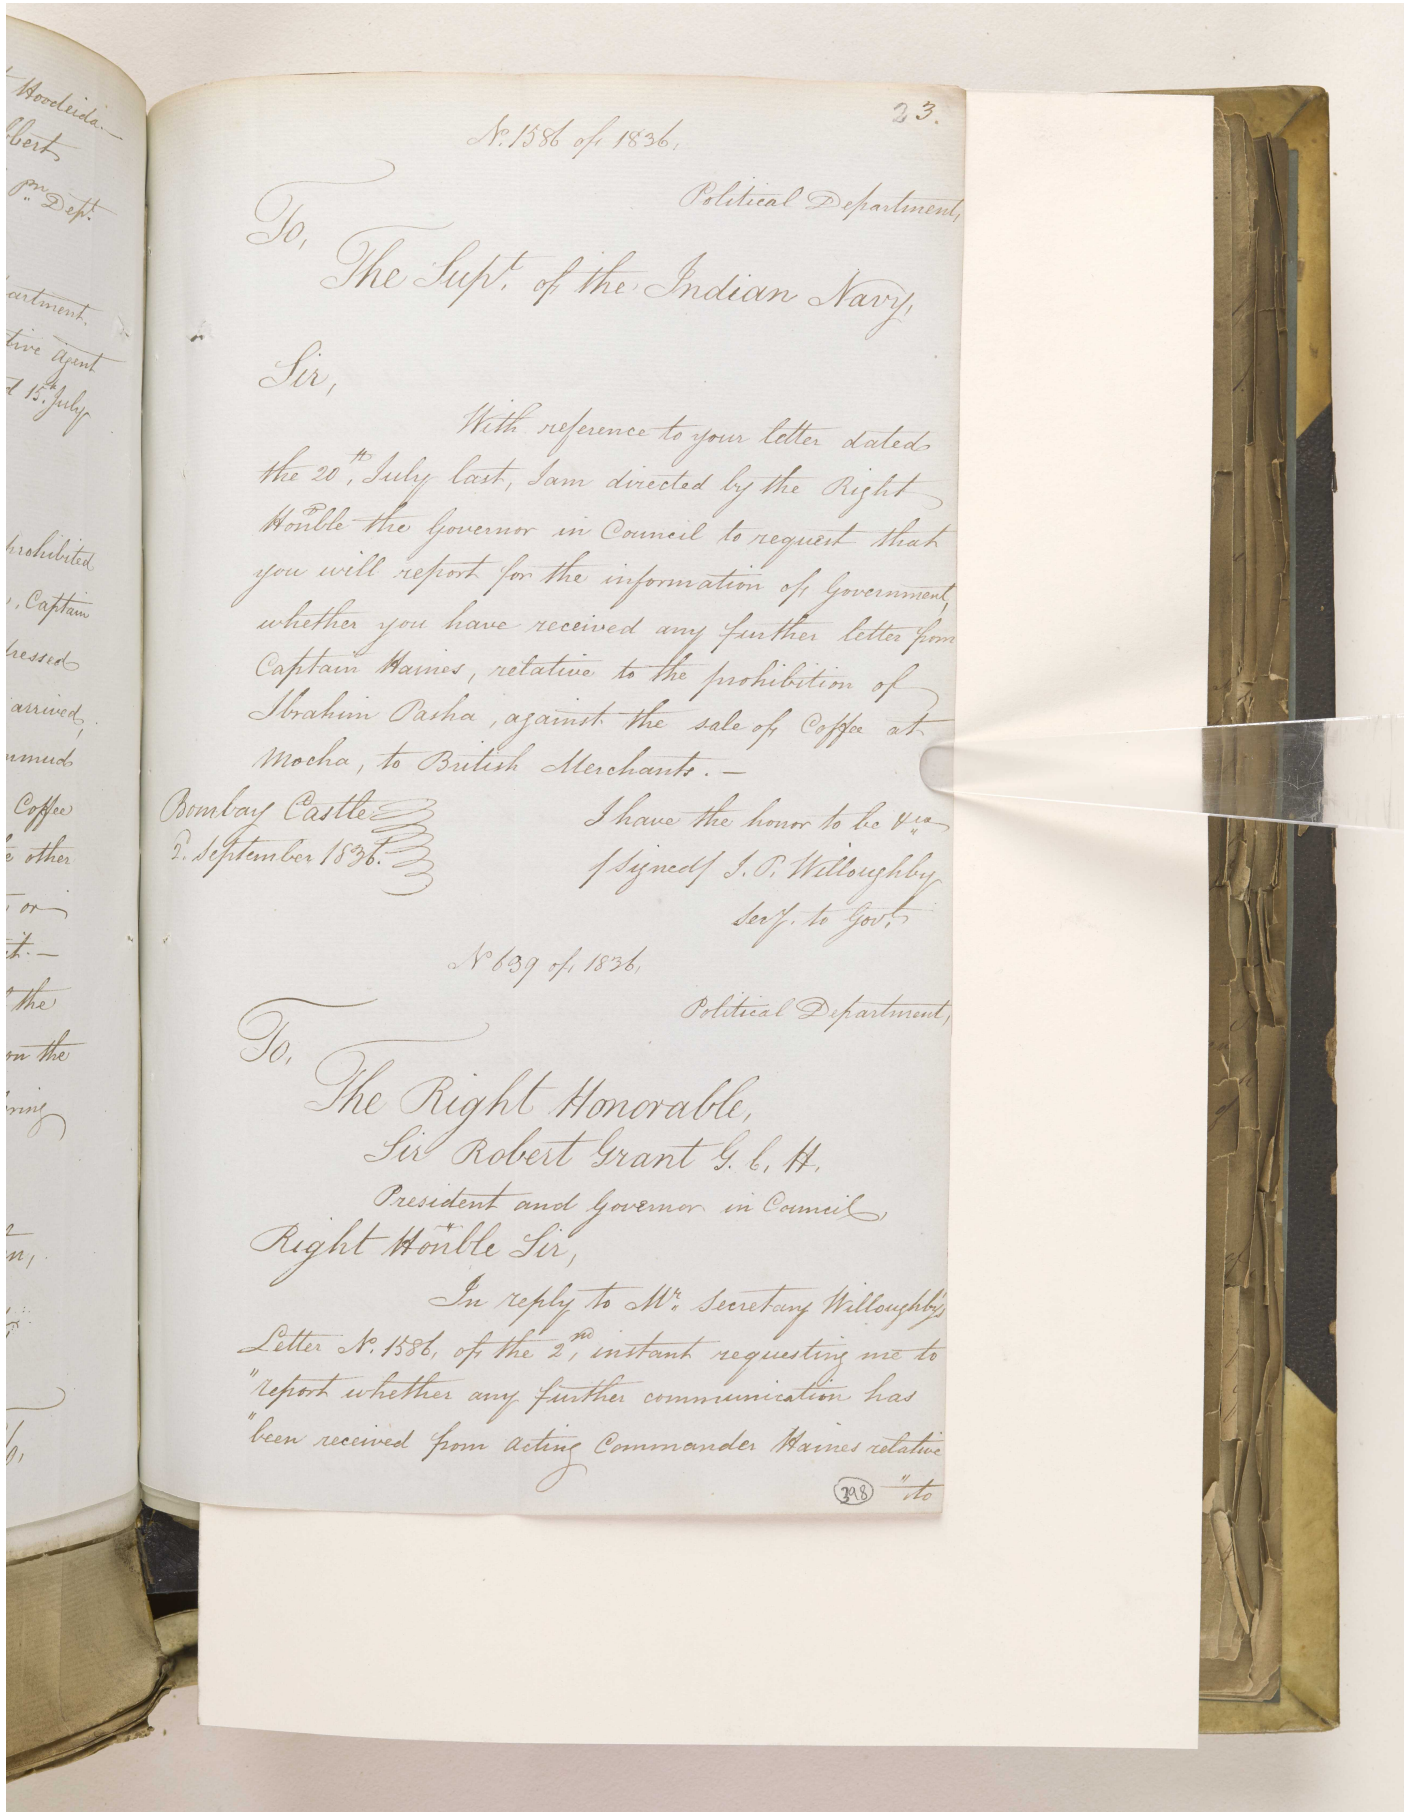 Hoodeida.
bert
Pn Dept.
artment.
tive Agent
d 15th July
prohibited
, Captain
dressed
arrived,
mmud
Coffee
e other
or
it. —
the
on the
bring
23.
No. 1586 of 1836.
Political Department,
To,
The Supt. of the Indian Navy,
Sir,
With reference to your letter dated
the 20th, July last, I am directed by the Right
Honble the Governor in Council to request that
you will report for the information of Government,
whether you have received any further letter from
Captain Haines, relative to the prohibition of
Ibrahim Pasha, against the sale of Coffee at
Mocha, to British Merchants. —
Bombay Castle
2. September 1836.
I have the honor to be &ca
/signed/ J. P. Willoughby
Secy. to Govt.
No 639 of 1836.
Political Department,
To,
The Right Honorable,
Sir Robert Grant G. C. H.
President and Governor in Council,
Right Honble Sir,
In reply to Mr. Secretary Willoughby's
Letter No. 1586, of the 2nd, instant requesting me to
"report whether any further communication has
"been received from Acting Commander Haines relative
"to
398